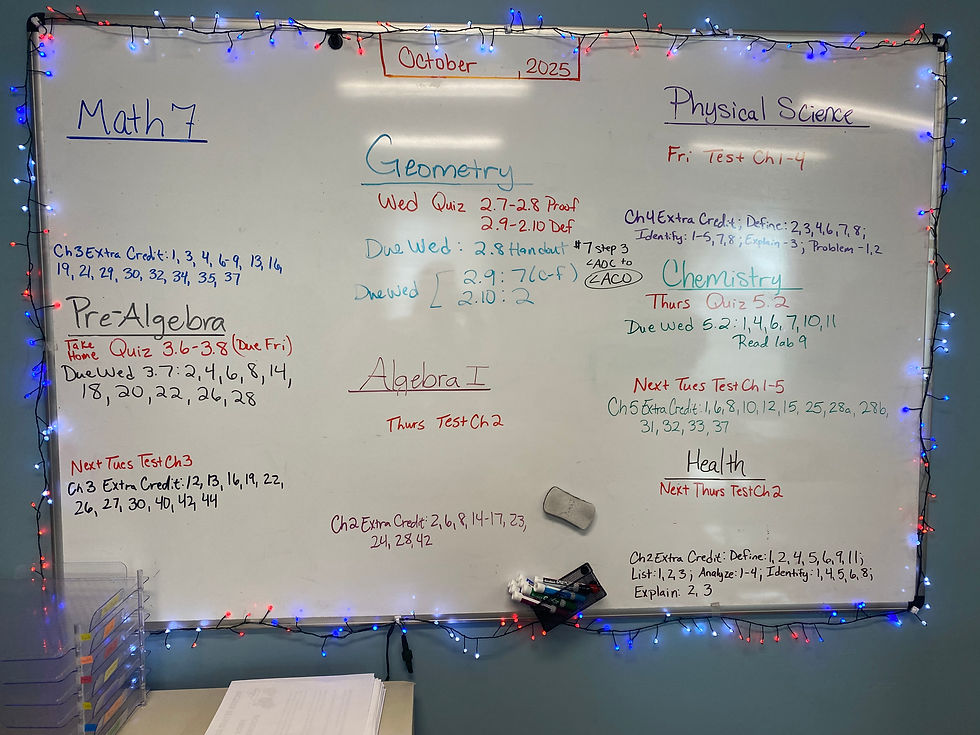 October , 2025
Math 7
Ch 3 Extra Credit: 1, 3, 4, 6-9, 13, 16,
19, 21, 29, 30, 32, 34, 35, 37
Pre-Algebra
Take Home Quiz 3.6-3.8 (Due Fri)
Due Wed 3.7: 2, 4, 6, 8, 14,
18, 20, 22, 26, 28
Next Tues Test Ch 3
Ch 3 Extra Credit: 12, 13, 16, 19, 22,
26, 27, 30, 40, 42, 44
Geometry
Wed Quiz 2.7-2.8 Proof
2.9-2.10 Def
Due Wed: 2.8 Handout #7 step 3
∠ADC to
∠ACD
Due Wed [ 2.9: 7(c-f)
2.10: 2
Algebra I
Thurs Test Ch 2
Ch 2 Extra Credit: 2, 6, 8, 14-17, 23,
24, 28, 42
Physical Science
Fri Test Ch 1-4
Ch 4 Extra Credit; Define: 2, 3, 4, 6, 7, 8;
Identify: 1-5, 7, 8; Explain-3; Problem-1, 2
Chemistry
Thurs Quiz 5.2
Due Wed 5.2: 1, 4, 6, 7, 10, 11
Read lab 9
Next Tues Test Ch 1-5
Ch 5 Extra Credit: 1, 6, 8, 10, 12, 15, 25, 28a, 28b,
31, 32, 33, 37
Health
Next Thurs Test Ch 2
Ch 2 Extra Credit: Define: 1, 2, 4, 5, 6, 9, 11;
List: 1, 2, 3; Analyze: 1-4; Identify: 1, 4, 5, 6, 8;
Explain: 2, 3